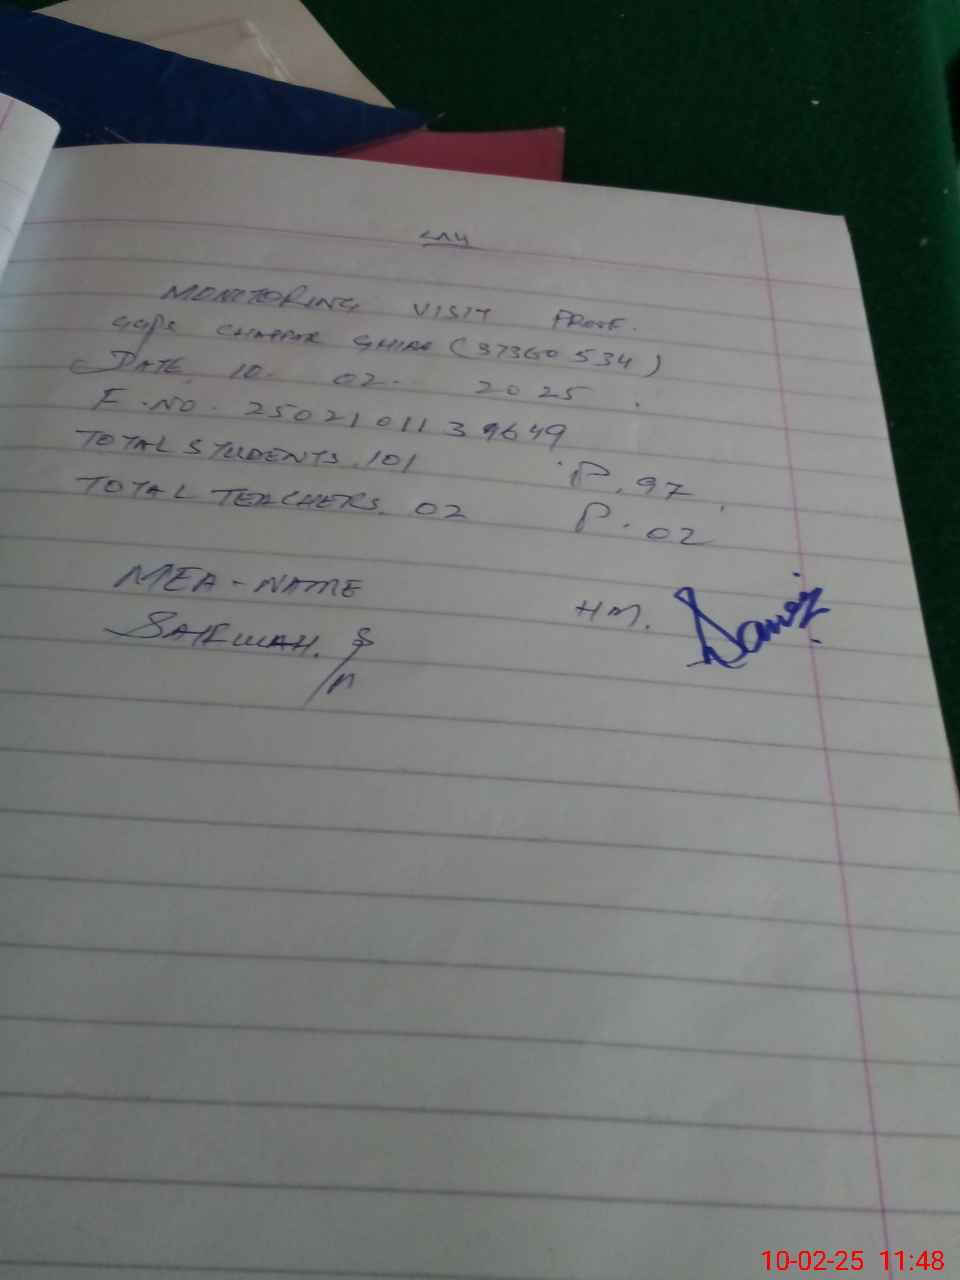 MONITORING VISIT PROOF.
GGPS CHAPPAR (37360534)
DATE 10. 02. 2025.
F. NO. 2502101139649
TOTAL STUDENTS. 101 P. 97
TOTAL TEACHERS. 02 P. 02
MEA - NAME
HM.
10-02-25 11:48